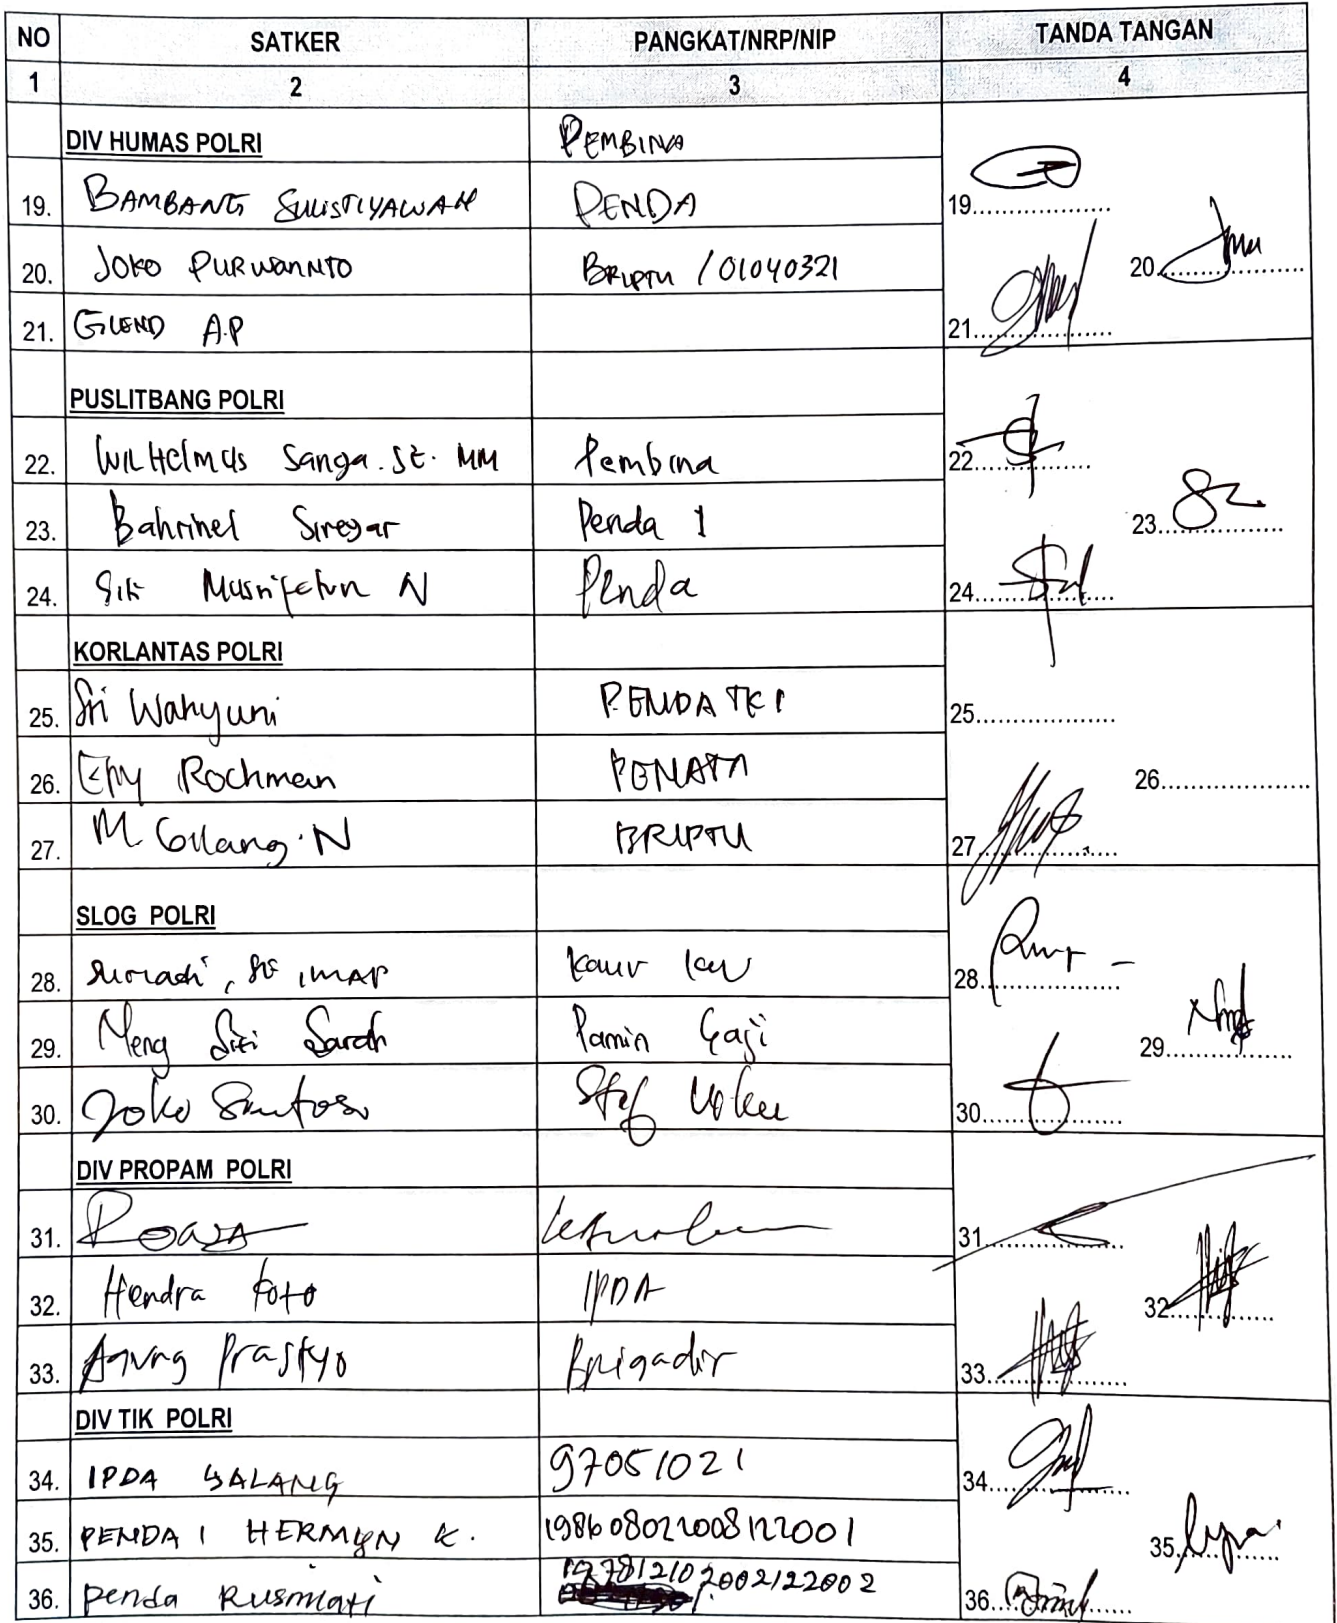 NO SATKER PANGKAT/NRP/NIP TANDA TANGAN
1 2 3 4
DIV HUMAS POLRI PEMBINA
19. BAMBANG SULISTIYAWAN PENDA 19..................
20. JOKO PURWANNTO BRIPTU / 01040321 20..................
21. GLEND A.P 21..................
PUSLITBANG POLRI
22. WILHelmus Sanga. SE. MM Pembina 22..................
23. Bahrinel Siregar Penda 1 23..................
24. Siti Musrifatun N Penda 24..................
KORLANTAS POLRI
25. Sri Wahyuni PENDA TK I 25..................
26. Epy Rochman PENATA 26..................
27. M. Gilang. N BRIPTU 27..................
SLOG POLRI
28. Kaur keu 28..................
29. Meng Siti Sarah Pamin Gaji 29..................
30. Joko Santoso Staf 30..................
DIV PROPAM POLRI
31. 31..................
32. Hendra Foto IPDA 32..................
33. Agung Prastyo Brigadir 33..................
DIV TIK POLRI
34. IPDA GALANG 97051021 34..................
35. PENDA I HERMYN K. 198608022008122001 35..................
36. Penda Rusmiati 197812102002122002 36..................